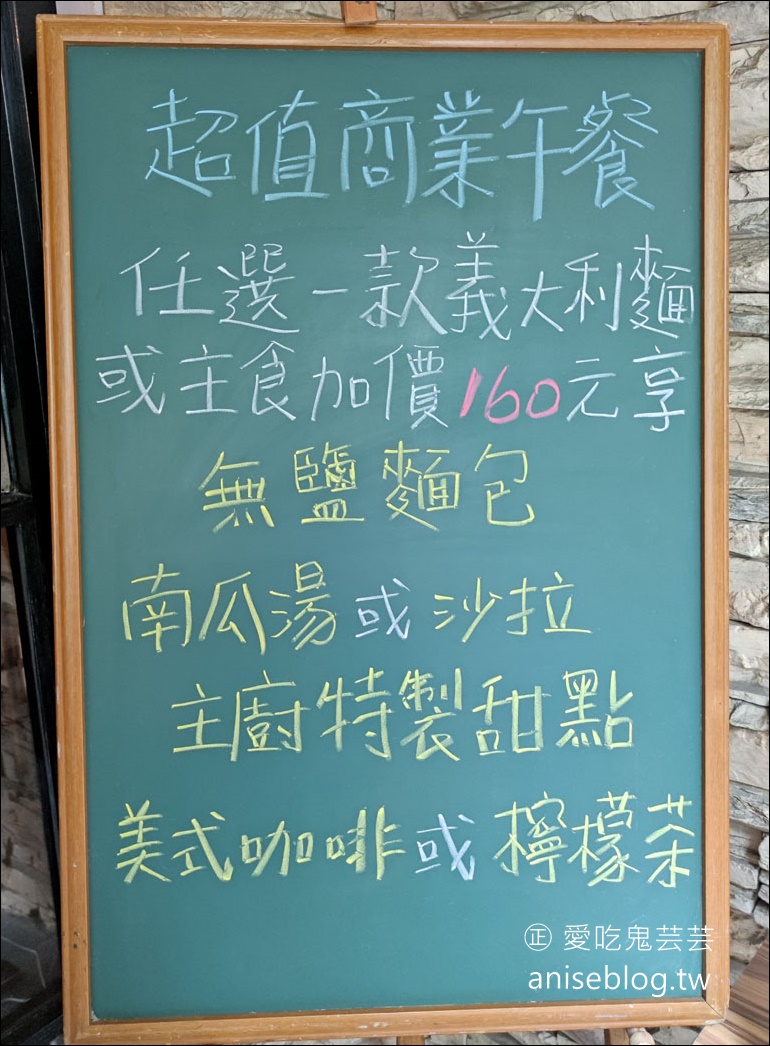 超值商業午餐
任選一款義大利麵
或主食加價160元享
無鹽麵包
南瓜湯或沙拉
主廚特製甜點
美式咖啡或檸檬茶
正 愛吃鬼芸芸
aniseblog.tw